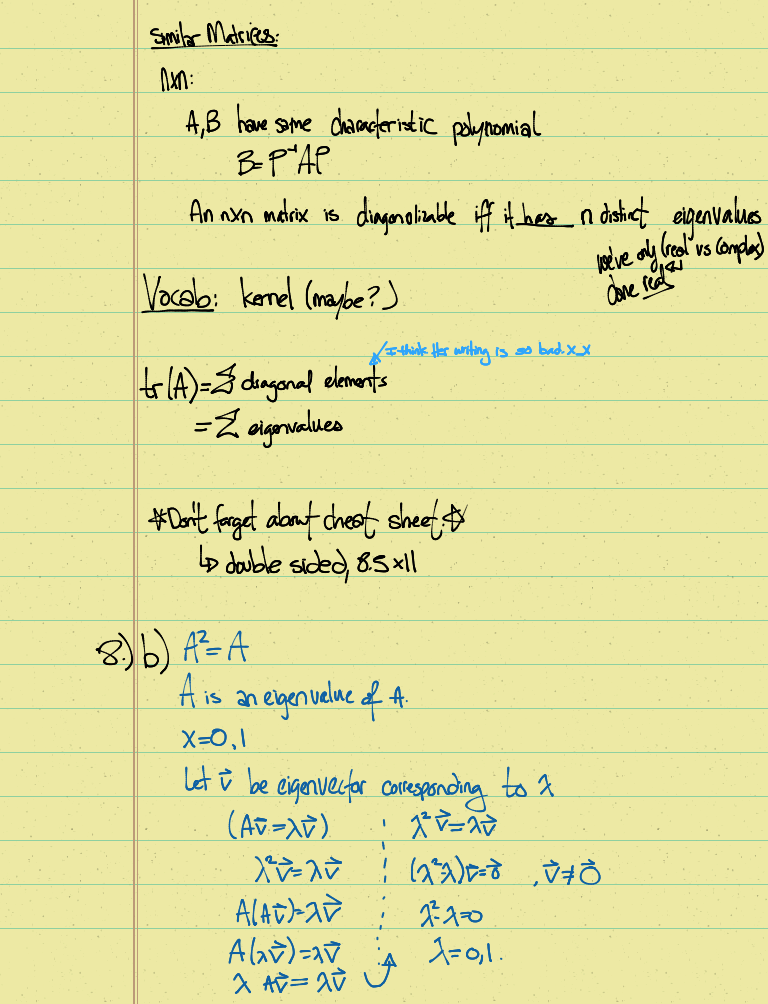 Similar Matrices:
nxn:
A,B have same characteristic polynomial
B=P⁻¹AP
An nxn matrix is diagonolizable iff it has n distinct eigenvalues
we've only (real vs complex)
done real
Vocab: kernel (maybe?)
I think Her writing is so bad. x_x
tr(A)=Σ diagonal elements
=Σ eigenvalues
☆Don't forget about cheat sheet☆
↳ double sided, 8.5x11
8.) b) A²=A
A is an eigenvalue of A.
x=0,1
Let v⃗ be eigenvector corresponding to λ
(Av⃗=λv⃗)
λ²v⃗=λv⃗
A(Av⃗)=λv⃗
A(λv⃗)=λv⃗
λ Av⃗=λv⃗
λ²v⃗=λv⃗
(λ²-λ)v⃗=0⃗ , v⃗≠0⃗
λ²-λ=0
λ=0,1.